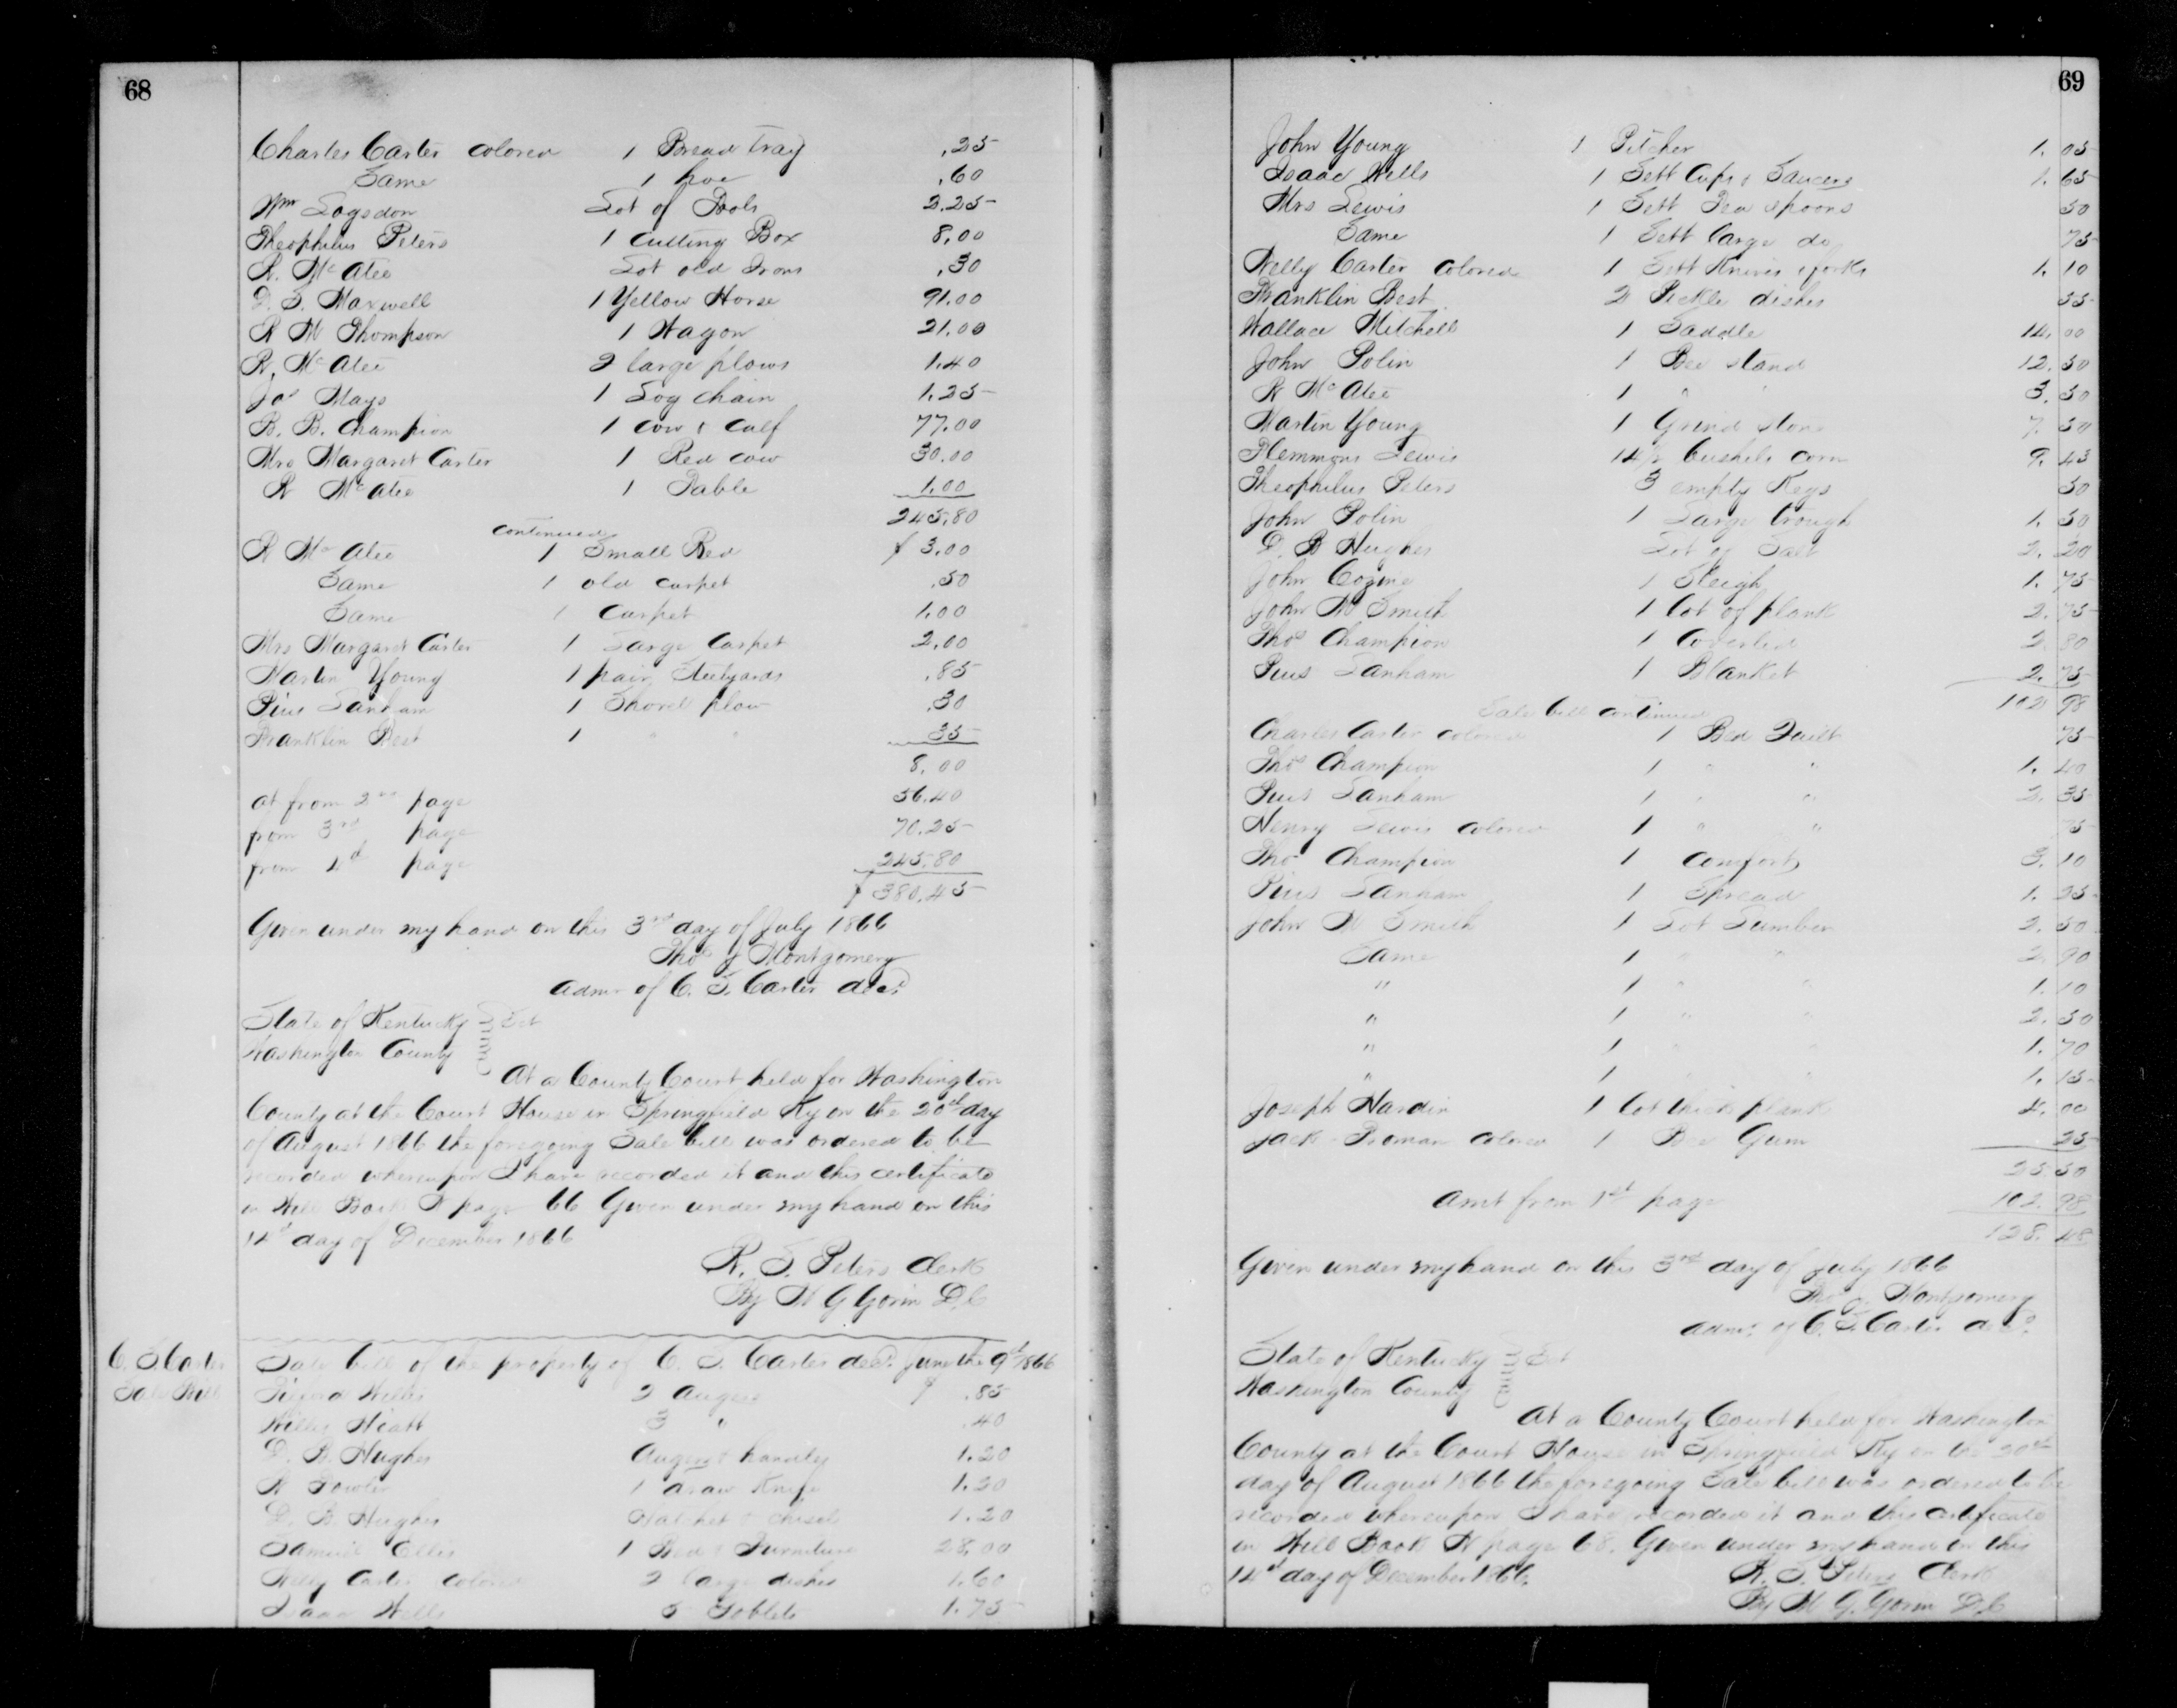 68
Charles Carter colored 1 Bread tray .25
Same 1 hoe .60
Wm Logsdon Lot of Tools 2.25
Theophilus Peters 1 Cutting Box 8.00
R. McAtee Lot old Irons .30
D. S. Maxwell 1 Yellow Horse 91.00
R M Thompson 1 Wagon 21.00
R. McAtee 2 large plows 1.40
Jas Mays 1 Log chain 1.25
B. B. Champion 1 cow & calf 77.00
Mrs Margaret Carter 1 Red cow 30.00
R McAtee 1 Table 1.00
245.80
continued
R McAtee 1 Small Red $ 3.00
Same 1 old carpet .50
Same 1 Carpet 1.00
Mrs Margaret Carter 1 Large Carpet 2.00
Martin Young 1 pair Steelyards .85
Pius Lanham 1 Shovel plow .30
Franklin Best 1 " " 35
8.00
at from 2nd page 56.40
from 3rd page 70.25
from 1st page 245.80
$ 380.45
Given under my hand on this 3rd day of July 1866
Thos J Montgomery
Admr of C. S. Carter decd
State of Kentucky Sct
Washington County
At a County Court held for Washington
County at the Court House in Springfield Ky on the 20th day
of August 1866 the foregoing Sale bill was ordered to be
recorded whereupon I have recorded it and this certificate
in Will Book N page 66 Given under my hand on this
14th day of December 1866
R. S. Peters Clerk
By W G Gorin D.C
C. S. Carter
Sale Bill
Sale bill of the property of C. S. Carter decd. June the 9th 1866
Willis 2 Augers $ .85
Willis Hiatt 3 " .40
D. B. Hughes Auger & handles 1.20
R Fowler 1 draw Knife 1.20
D. B. Hughes Hatchet & chisel 1.20
Samuel Ellis 1 Bed & Furniture 28.00
Nelly Carter colored 2 large dishes 1.60
Isaac Wells 5 Goblets 1.75
69
John Young 1 Pitcher 1.05
Isaac Wells 1 Sett Cups & Saucers 1.65
Mrs Lewis 1 Sett Tea spoons 50
Same 1 Sett large do 75
Nelly Carter colored 1 Sett Knives & forks 1.10
Franklin Best 2 Pickle dishes 55
Wallace Mitchell 1 Saddle 14.00
John Polin 1 Bee stand 12.50
R McAtee 1 " " 3.50
Martin Young 1 Grind stone 7.50
Flemmons Lewis 14½ bushels corn 9.43
Theophilus Peters 3 empty Kegs 50
John Polin 1 Large trough 1.50
D. B Hughes Lot of Salt 2.20
John Cozine 1 Sleigh 1.75
John W Smith 1 lot of plank 2.75
Thos Champion 1 Coverlid 2.80
Pius Lanham 1 Blanket 2.75
102 98
Sale bill continued
Charles Carter colored 1 Bed Quilt 75
Thos Champion 1 " " 1.40
Pius Lanham 1 " " 2.35
Henry Lewis colored 1 " " 75
Thos Champion 1 Comfort 3.10
Pius Lanham 1 Spread 1.25
John W Smith 1 Lot Lumber 2.50
Same 1 " " 2.90
" 1 " " 1.10
" 1 " " 2.50
" 1 " " 1.70
" 1 " " 1.15
Joseph Hardin 1 lot thick plank 4.00
Jack Roman colored 1 Bee Gum 25
25 50
Amt from 1st page 102.98
128.48
Given under my hand on this 3rd day of July 1866
Thos J. Montgomery
Admr. of C. S. Carter decd.
State of Kentucky Sct
Washington County
At a County Court held for Washington
County at the Court House in Springfield Ky on the 20th
day of August 1866 the foregoing Sale bill was ordered to be
recorded whereupon I have recorded it and this certificate
in Will Book N page 68. Given under my hand on this
14th day of December 1866.
R. S. Peters Clerk
By W G. Gorin D.C